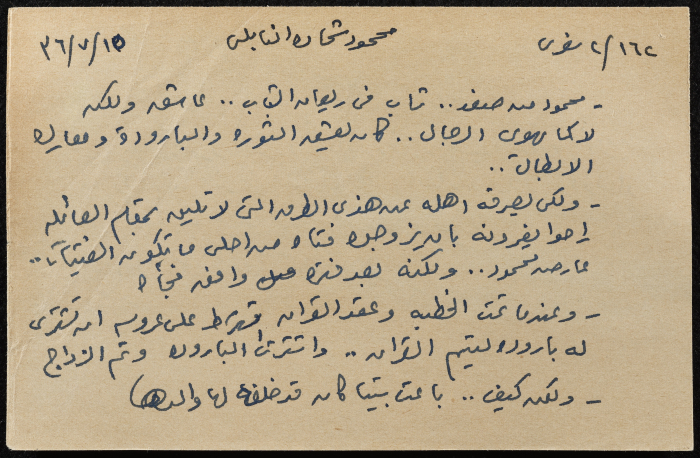 ١٦٢/ ٢ سفرى محمود شحاده النابلسى ٣٦/٧/١٥
- محمود من صفد.. شاب فى ريعان الشباب.. عاشق ولكنه
لا كما يهوى الرجال.. كان يعشق الثوره والباروده ومعارك
الابطال..
- ولكى يصرفه اهله عن هذى الطريق التى لا تليق بمقام العائله
راحوا يغرونه بان يزوجوه فتاه من احلى ما تكون الفتيات..
عارض محمود.. ولكنه بعد فتره وافق فجأه
- وعندما تمت الخطبه وعقد القران اشترط على عروسه ان تشترى
له باروده ليتم القران.. واشترت الباروده وتم الزواج
- ولكن كيف.. باعت بيتا كان قد خلفه لها والدها)